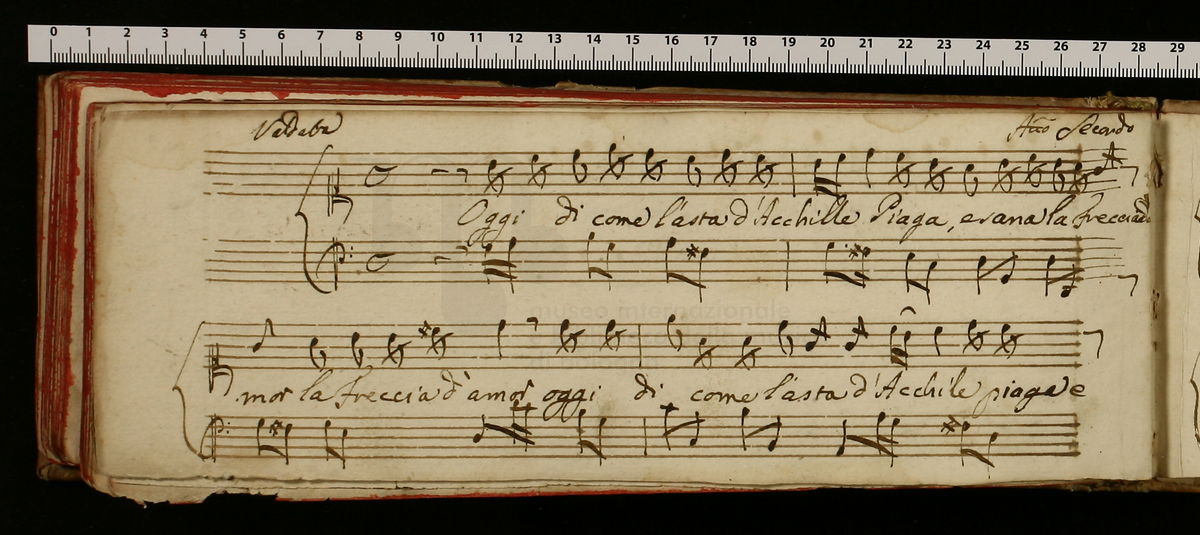 0 1 2 3 4 5 6 7 8 9 10 11 12 13 14 15 16 17 18 19 20 21 22 23 24 25 26 27 28 29
Atto Secondo
Oggi di come l'asta d'Acchille Piaga, e sana la freccia d'a
museo internazionale
mor la freccia d'amor oggi di come l'asta d'Acchile piaga e